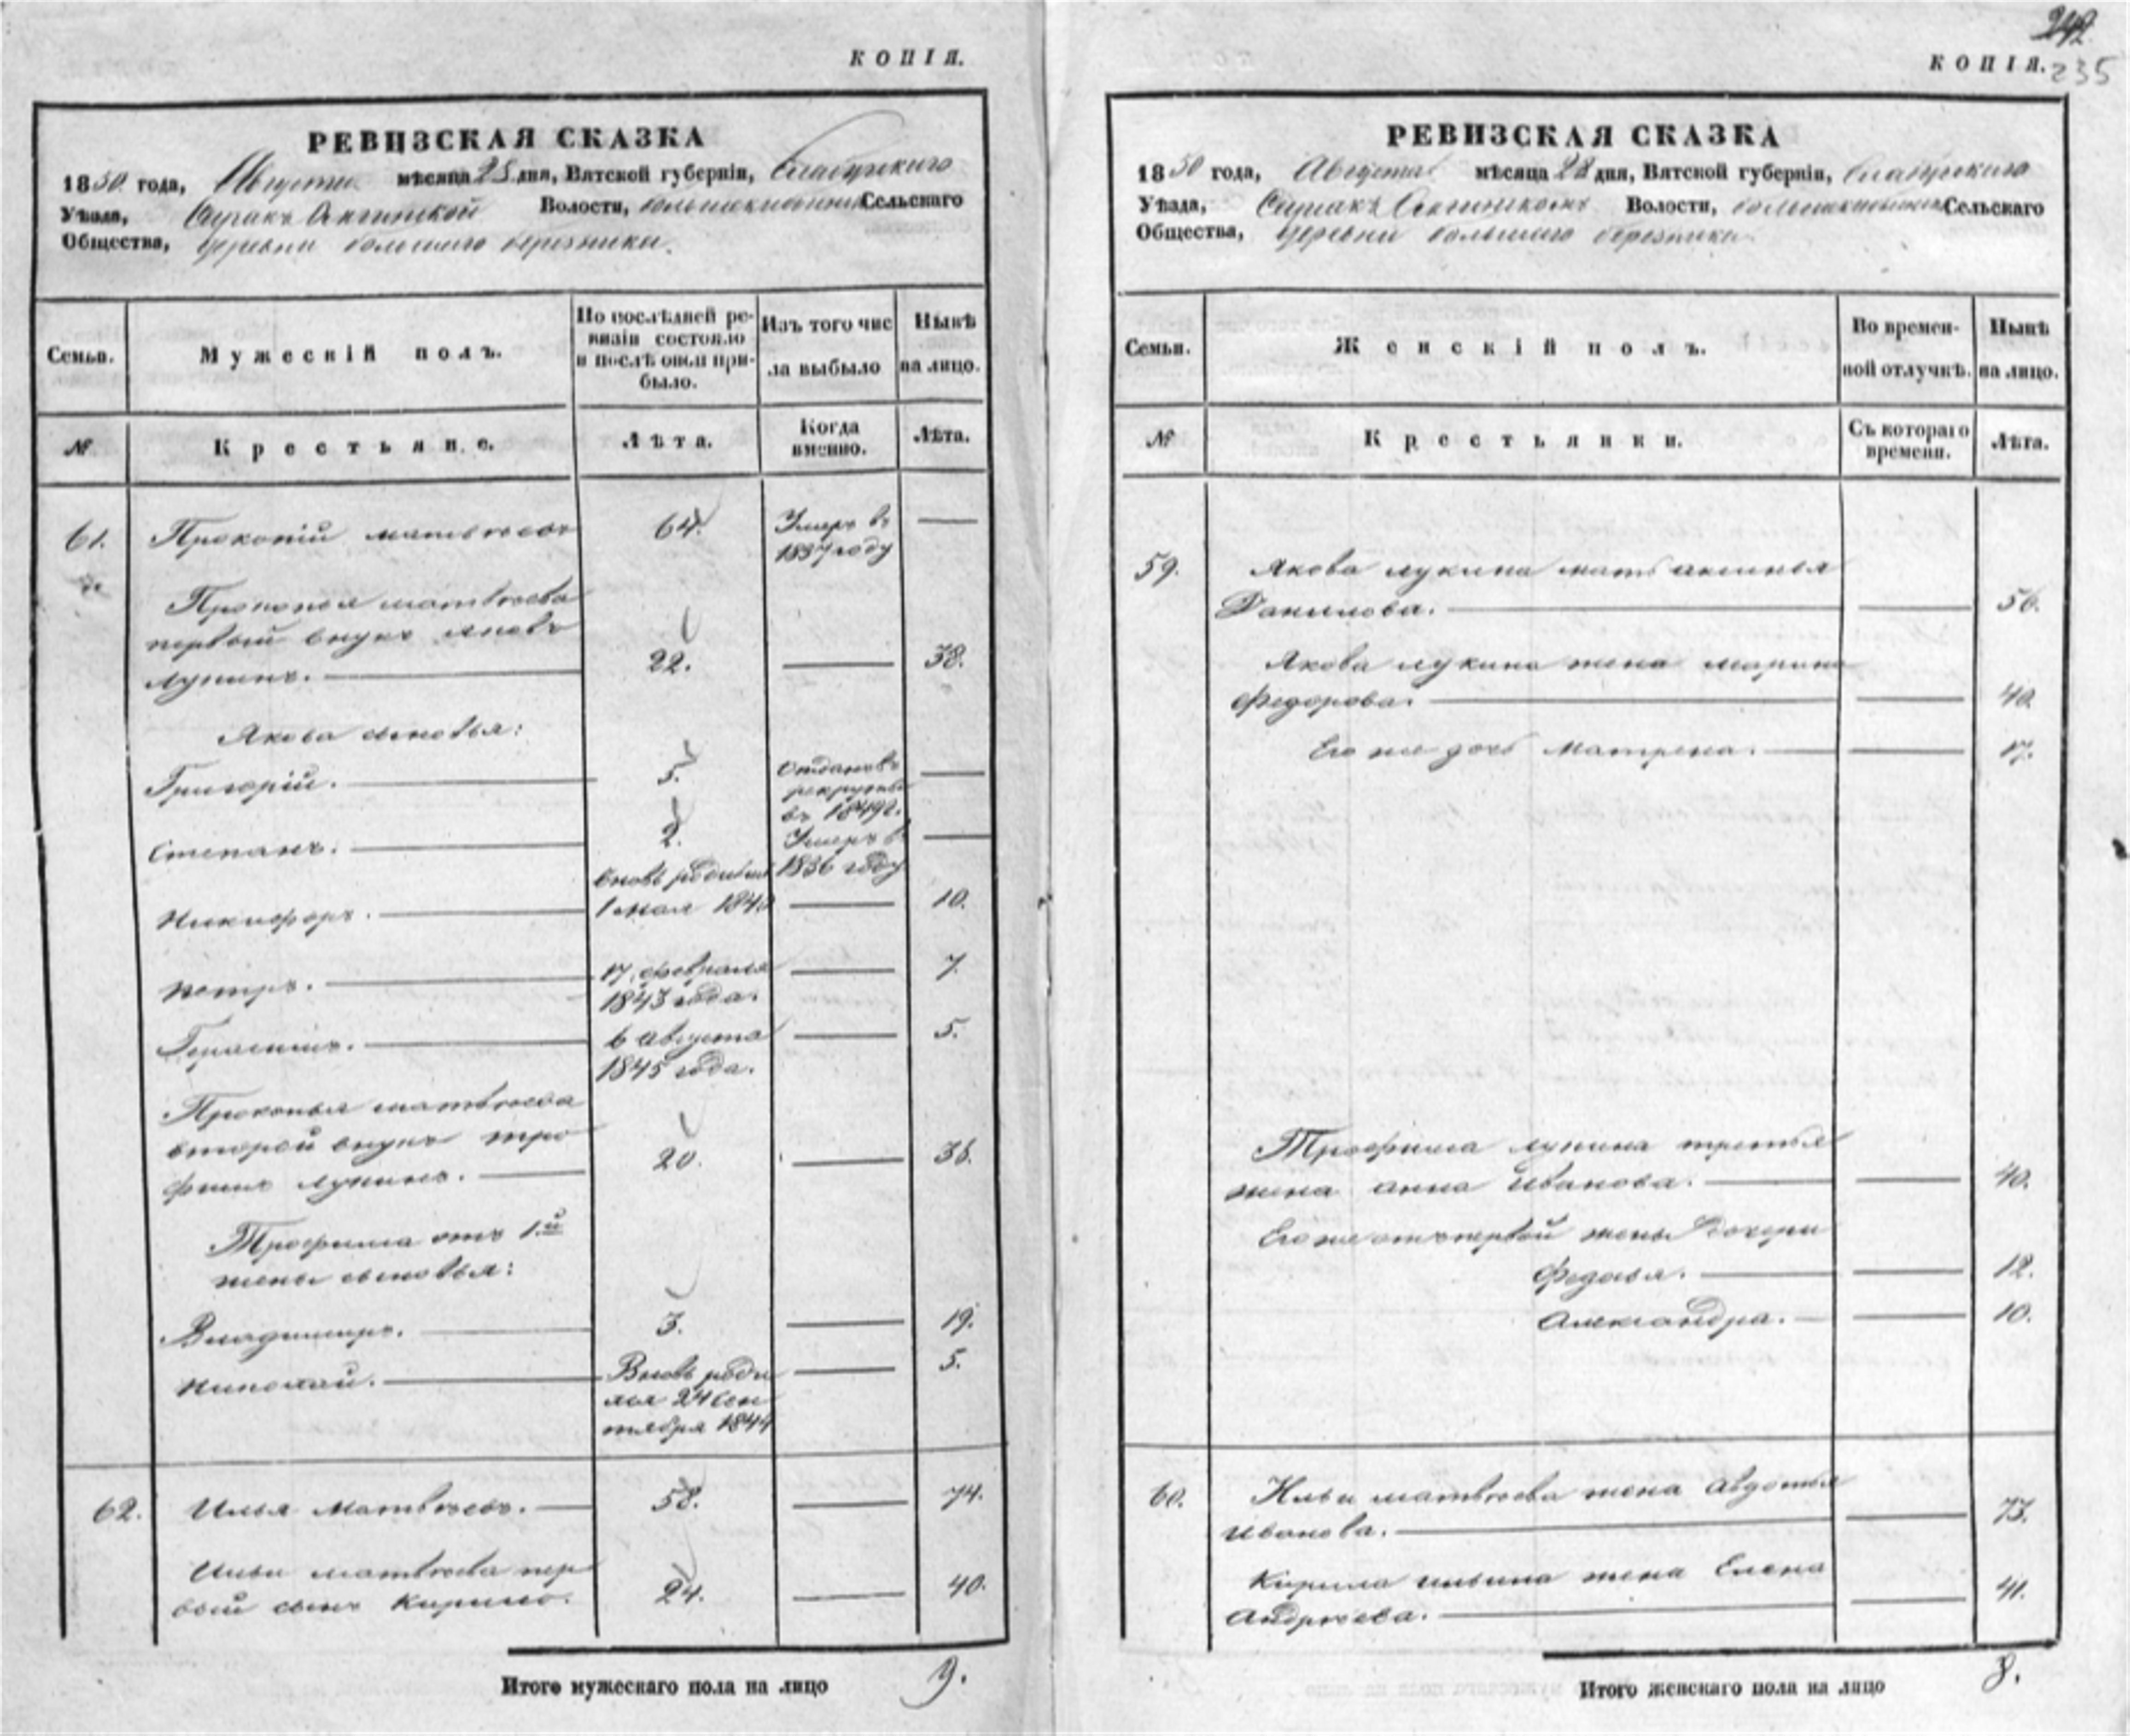 КОПІЯ.
РЕВИЗСКАЯ СКАЗКА
1850 года, Августа мѣсяца 28 дня, Вятской губерніи, Елабужскаго
Уѣзда, Волости, Сельскаго
Общества, деревни большаго березника.
Семьи.
Мужескій полъ.
По послѣдней ре-
визіи состояло
и послѣ оной при-
было.
Изъ того чис
ла выбыло
Нынѣ
на лицо.
№
Крестьяне.
Лѣта.
Когда
именно.
Лѣта.
61. Прокопій матвѣевъ 64. Умеръ въ —
1837 году
Прокопья матвѣева
первый внукъ яковъ
лукинъ. — 22. — 38.
Якова сыновья:
Григорій. — 5. Отданъ въ —
рекруты
въ 1849 г.
Степанъ. — 2. Умеръ в —
1836 году
вновь родивш
Никифоръ. — 1 мая 1840 — 10.
Петръ. — 17 февраля — 7.
1843 года.
Герасимъ. — 6 августа — 5.
1845 года.
Прокопья матвѣева
второй внукъ тро
фимъ лукинъ. — 20. — 36.
Трофима отъ 1й
жены сыновья:
Владимиръ. — 3. — 19.
Николай. — Вновь роди — 5.
лся 24 сен
тября 1844
62. Илья Матвѣевъ. — 58. — 74.
Ильи матвѣева пер
вый сынъ Кирило. 24. — 40.
Итого мужескаго пола на лицо 9.
242
КОПІЯ. 235
РЕВИЗСКАЯ СКАЗКА
1850 года, Августа мѣсяца 28 дня, Вятской губерніи, Елабужскаго
Уѣзда, Волости, Сельскаго
Общества, деревни большаго березника
Семьи.
Женскій полъ.
Во времен-
ной отлучкѣ.
Нынѣ
на лицо.
№
Крестьянки.
Съ котораго
времени.
Лѣта.
59. Якова лукина мать аксинья
Данилова. — — 56.
Якова лукина жена марина
федорова. — — 40.
Его же дочь матрена. — — 17.
Трофима лукина третья
жена анна Иванова. — — 40.
Его же отъ первой жены дочери
Федосья. — — 12.
Александра. — — 10.
60. Ильи матвѣева жена Авдотья
Иванова. — — 73.
Кирила ильина жена Елена
Андрѣева. — — 41.
Итого женскаго пола на лицо 8.